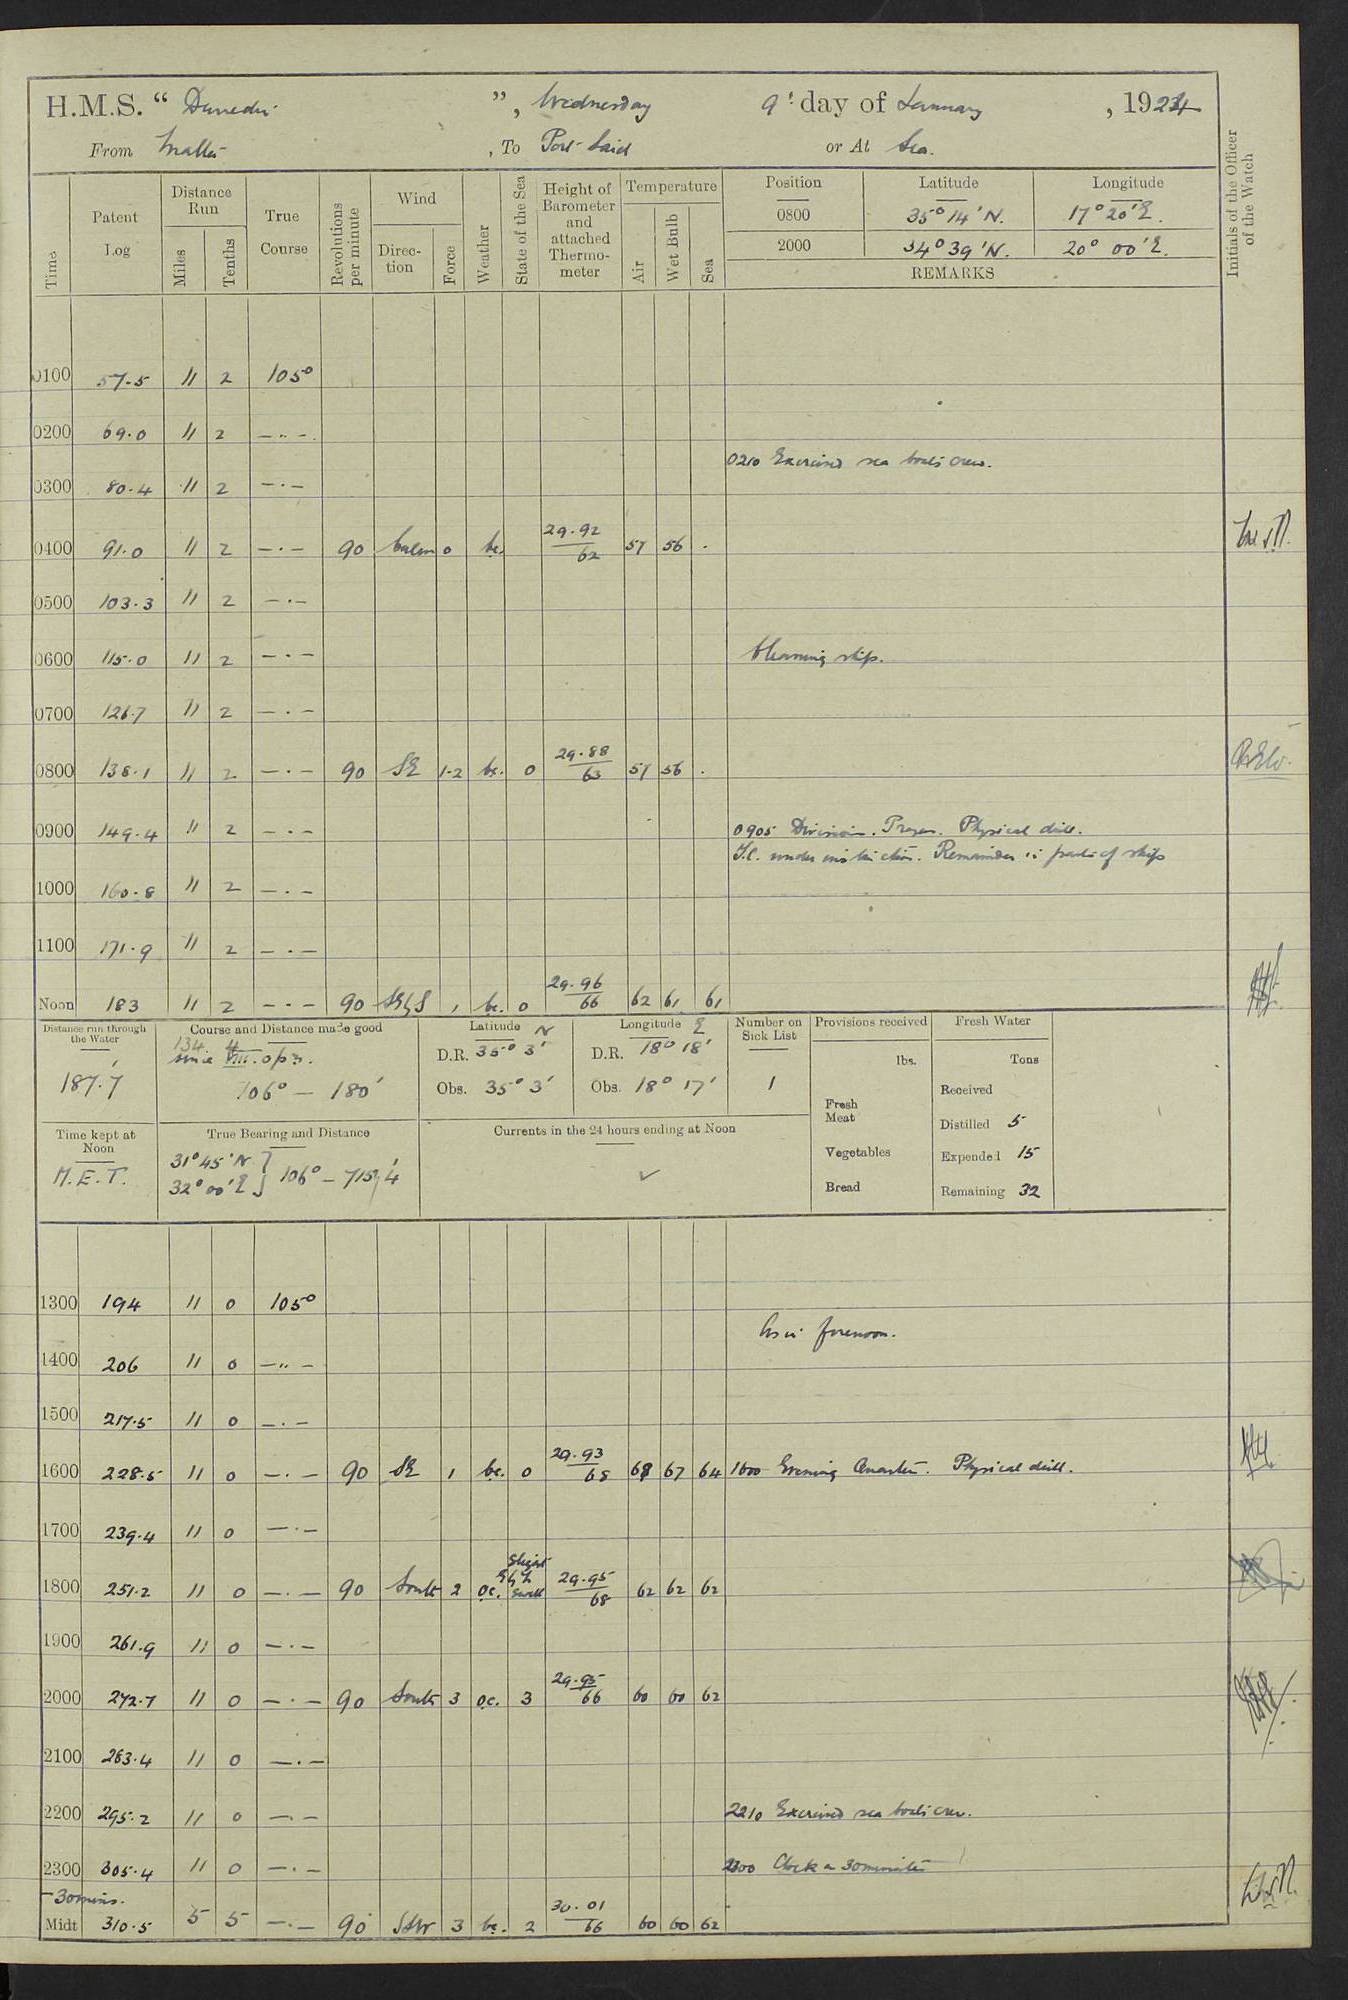 H.M.S. “ Dunedin ”, Wednesday 9th day of January , 1924
From Malta , To Port Said or At Sea.
Time Patent Log Distance Run Miles Tenths True Course Revolutions per minute Wind Direction Force Weather State of the Sea Height of Barometer and attached Thermometer Temperature Air Wet Bulb Sea Position Latitude Longitude Initials of the Officer of the Watch
0800 35° 14' N. 17° 20' E.
2000 34° 39' N. 20° 00' E.
REMARKS
0100 57.5 11 2 105°
0200 69.0 11 2 — " —
0210 Exercised sea boats crew.
0300 80.4 11 2 — . —
0400 91.0 11 2 — . — 90 Calm 0 bc. 29.92 62 57 56 .
0500 103.3 11 2 — . —
0600 115.0 11 2 — . — Cleaning ship.
0700 126.7 11 2 — . —
0800 138.1 11 2 — . — 90 SE 1-2 bc. 0 29.88 63 57 56 .
0900 149.4 11 2 — . — 0905 Divisions. Prayers. Physical drill.
T.C. under instruction. Remainder in parts of ship
1000 160.8 11 2 — . —
1100 171.9 11 2 — . —
Noon 183 11 2 — . — 90 SE by S 1 bc. 0 29.96 66 62 61 61
Distance run through the Water 187.7
Course and Distance made good
since 106° — 180'
Latitude N D.R. 35° 3' Obs. 35° 3'
Longitude E D.R. 18° 18' Obs. 18° 17'
Number on Sick List 1
Provisions received lbs.
Fresh Meat
Vegetables
Bread
Fresh Water Tons
Received
Distilled 5
Expended 15
Remaining 32
Time kept at Noon M.E.T.
True Bearing and Distance
31° 45' N } 106° — 715.4'
32° 00' E
Currents in the 24 hours ending at Noon
✓
1300 194 11 0 105°
As in forenoon.
1400 206 11 0 — " —
1500 217.5 11 0 — . —
1600 228.5 11 0 — . — 90 SE 1 bc. 0 29.93 68 68 67 64 1600 Evening Quarters. Physical drill.
1700 239.4 11 0 — . —
1800 251.2 11 0 — . — 90 South 2 oc. Slight Swell 29.95 68 62 62 62
1900 261.9 11 0 — . —
2000 272.7 11 0 — . — 90 South 3 oc. 3 29.95 66 60 60 62
2100 283.4 11 0 — . —
2200 295.2 11 0 — . — 2210 Exercised sea boats crew.
2300 305.4 11 0 — . — 2300 Clock on 30 minutes
-30 mins.
Midt 310.5 5 5 — . — 90 SSW 3 bc. 2 30.01 66 60 60 62